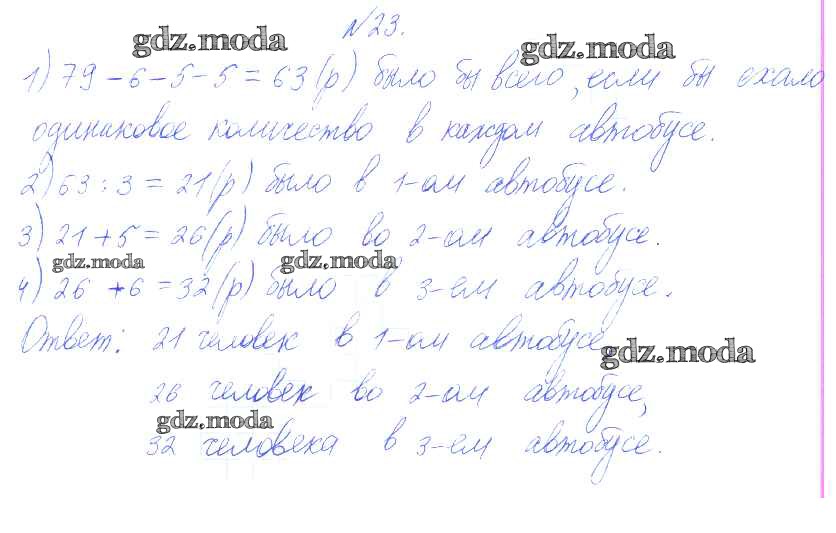 №23.
gdz.moda
gdz.moda
1) 79-6-5-5=63(р) было бы всего, если бы ехало
одинаковое количество в каждом автобусе.
2) 63:3=21(р) было в 1-ом автобусе.
3) 21+5=26(р) было во 2-ом автобусе.
gdz.moda
gdz.moda
4) 26+6=32(р) было в 3-ем автобусе.
Ответ: 21 человек в 1-ом автобусе,
gdz.moda
26 человек во 2-ом автобусе,
gdz.moda
32 человека в 3-ем автобусе.